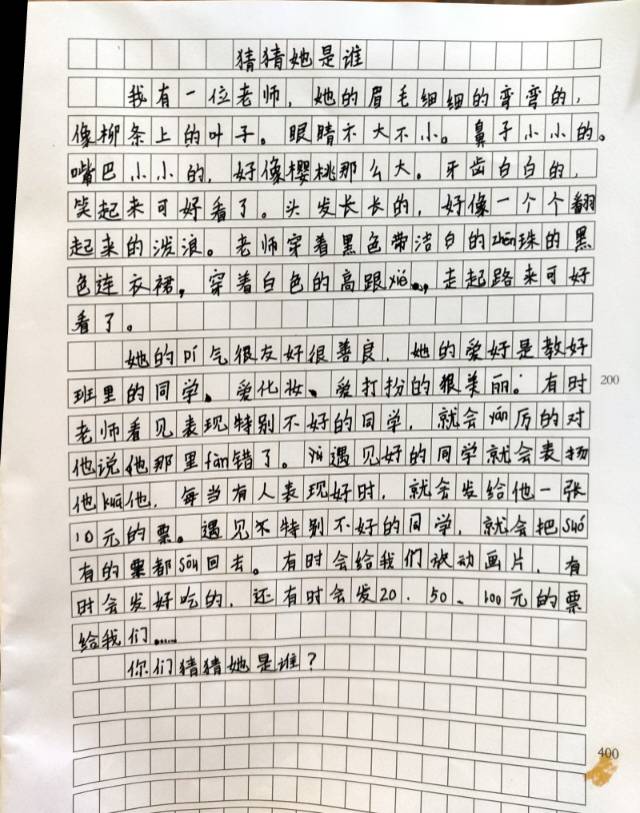 猜猜她是谁
我有一位老师，她的眉毛细细的弯弯的，
像柳条上的叶子。眼睛不大不小。鼻子小小的。
嘴巴小小的，好像樱桃那么大。牙齿白白的，
笑起来可好看了。头发长长的，好像一个个翻
起来的泼浪。老师穿着黑色带洁白的zhēn珠的黑
色连衣裙，穿着白色的高跟xié，走起路来可好
看了。
她的吖气很友好很善良，她的爱好是教好
班里的同学、爱化妆、爱打扮的很美丽。有时
老师看见表现特别不好的同学，就会yán厉的对
他说他那里fàn错了。遇见好的同学就会表扬
他kuā他，每当有人表现好时，就会发给他一张
10元的票。遇见不特别不好的同学，就会把suǒ
有的票都sōu回去。有时会给我们放动画片，有
时会发好吃的，还有时会发20、50、100元的票
给我们……
你们猜猜她是谁？
200
400